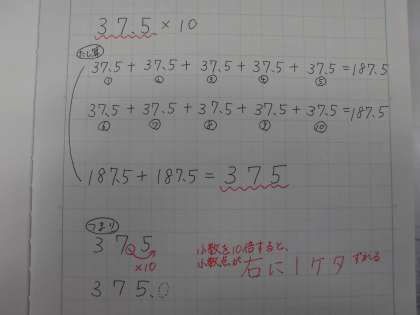 37.5×10
たし算
37.5 + 37.5 + 37.5 + 37.5 + 37.5 = 187.5
① ② ③ ④ ⑤
37.5 + 37.5 + 37.5 + 37.5 + 37.5 = 187.5
⑥ ⑦ ⑧ ⑨ ⑩
187.5 + 187.5 = 375
つまり
37.5
×10
375.0
小数を10倍すると、
小数点が右に1ケタずれる